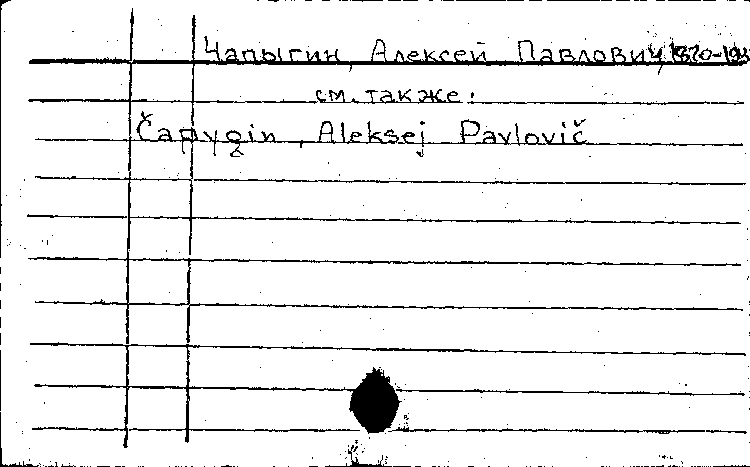 Чапыгин, Алексей Павлович,
см. также:
Čapygin, Aleksej Pavlovič